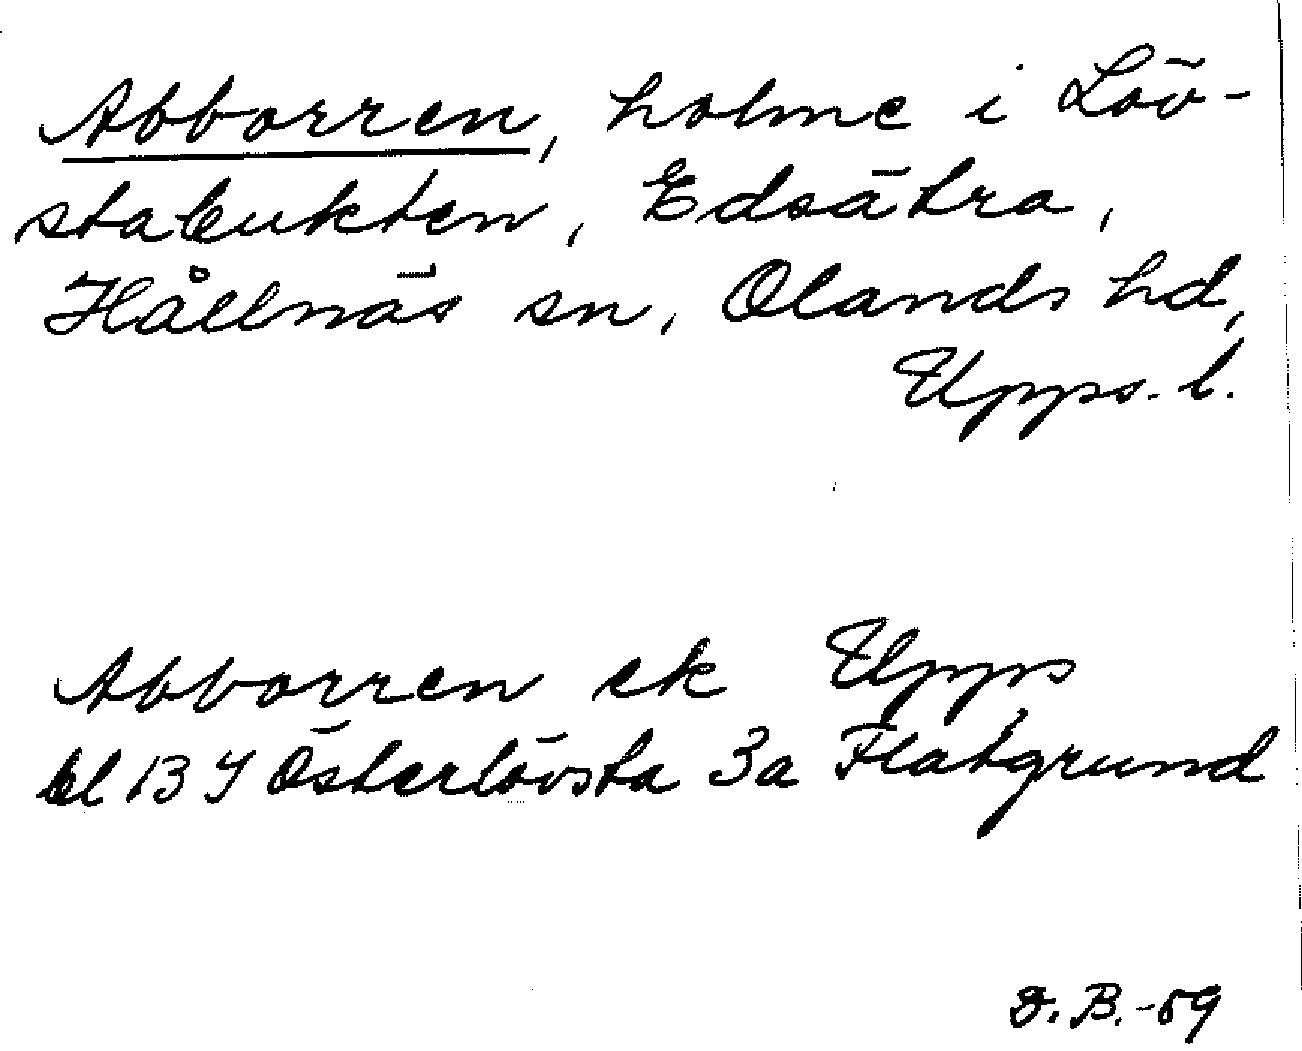 Abborren, holme i Löv-
stabukten, Edsätra,
Hållnäs sn, Olands hd,
Upps. l.
Abborren ek Upps
bl 13 I Österlövsta 3a Flatgrund
B.-59